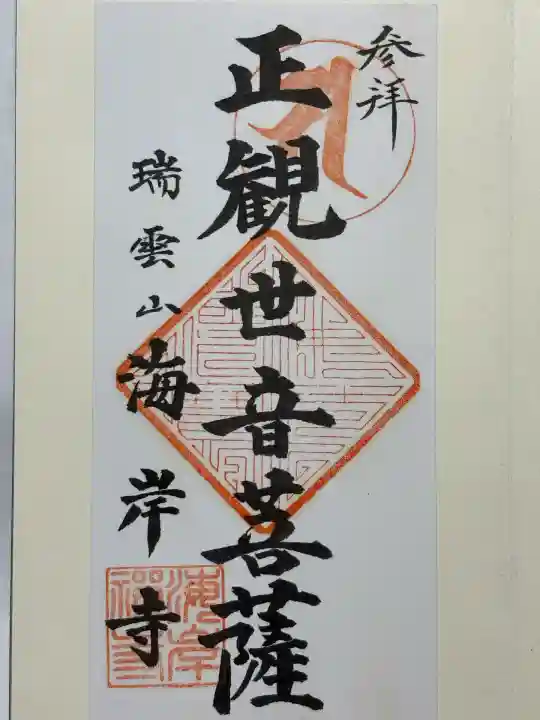 参拝
正観世音菩薩
瑞雲山海岸寺
海岸
禅寺